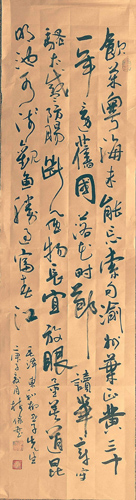 飲茶粵海未能忘索句渝州葉正黃三十
一年還舊國落花時節讀華章牢
騷太盛防腸斷風物長宜放眼量莫道昆
明池水淺觀魚勝過富春江
毛澤東和柳亞子先生
庚子